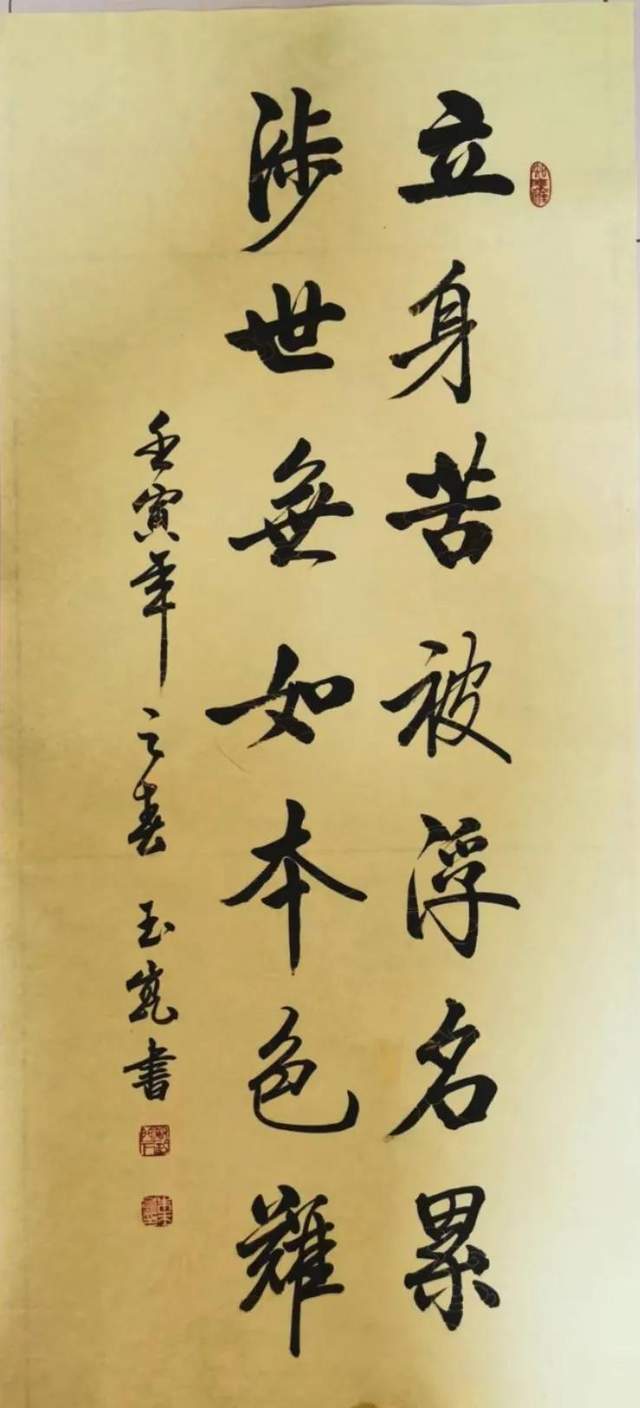 立身苦被浮名累
涉世無如本色難
壬寅年之春 玉寬書